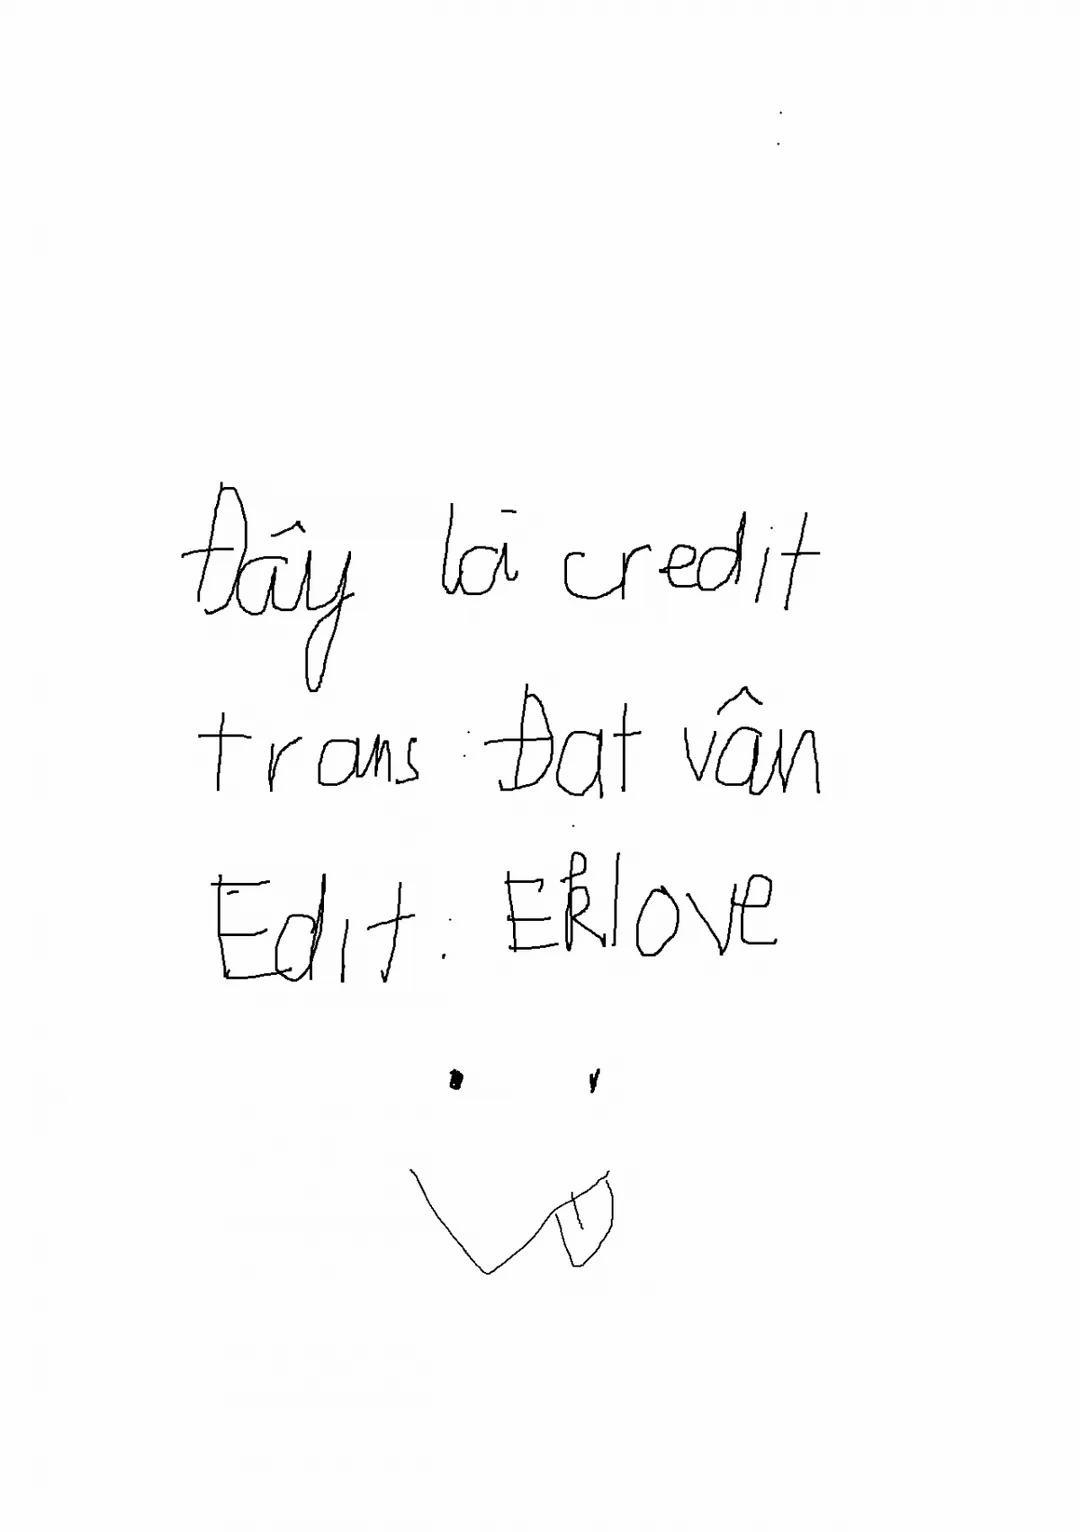 Đây là credit
trans : Đat vân
Edit : Eklove